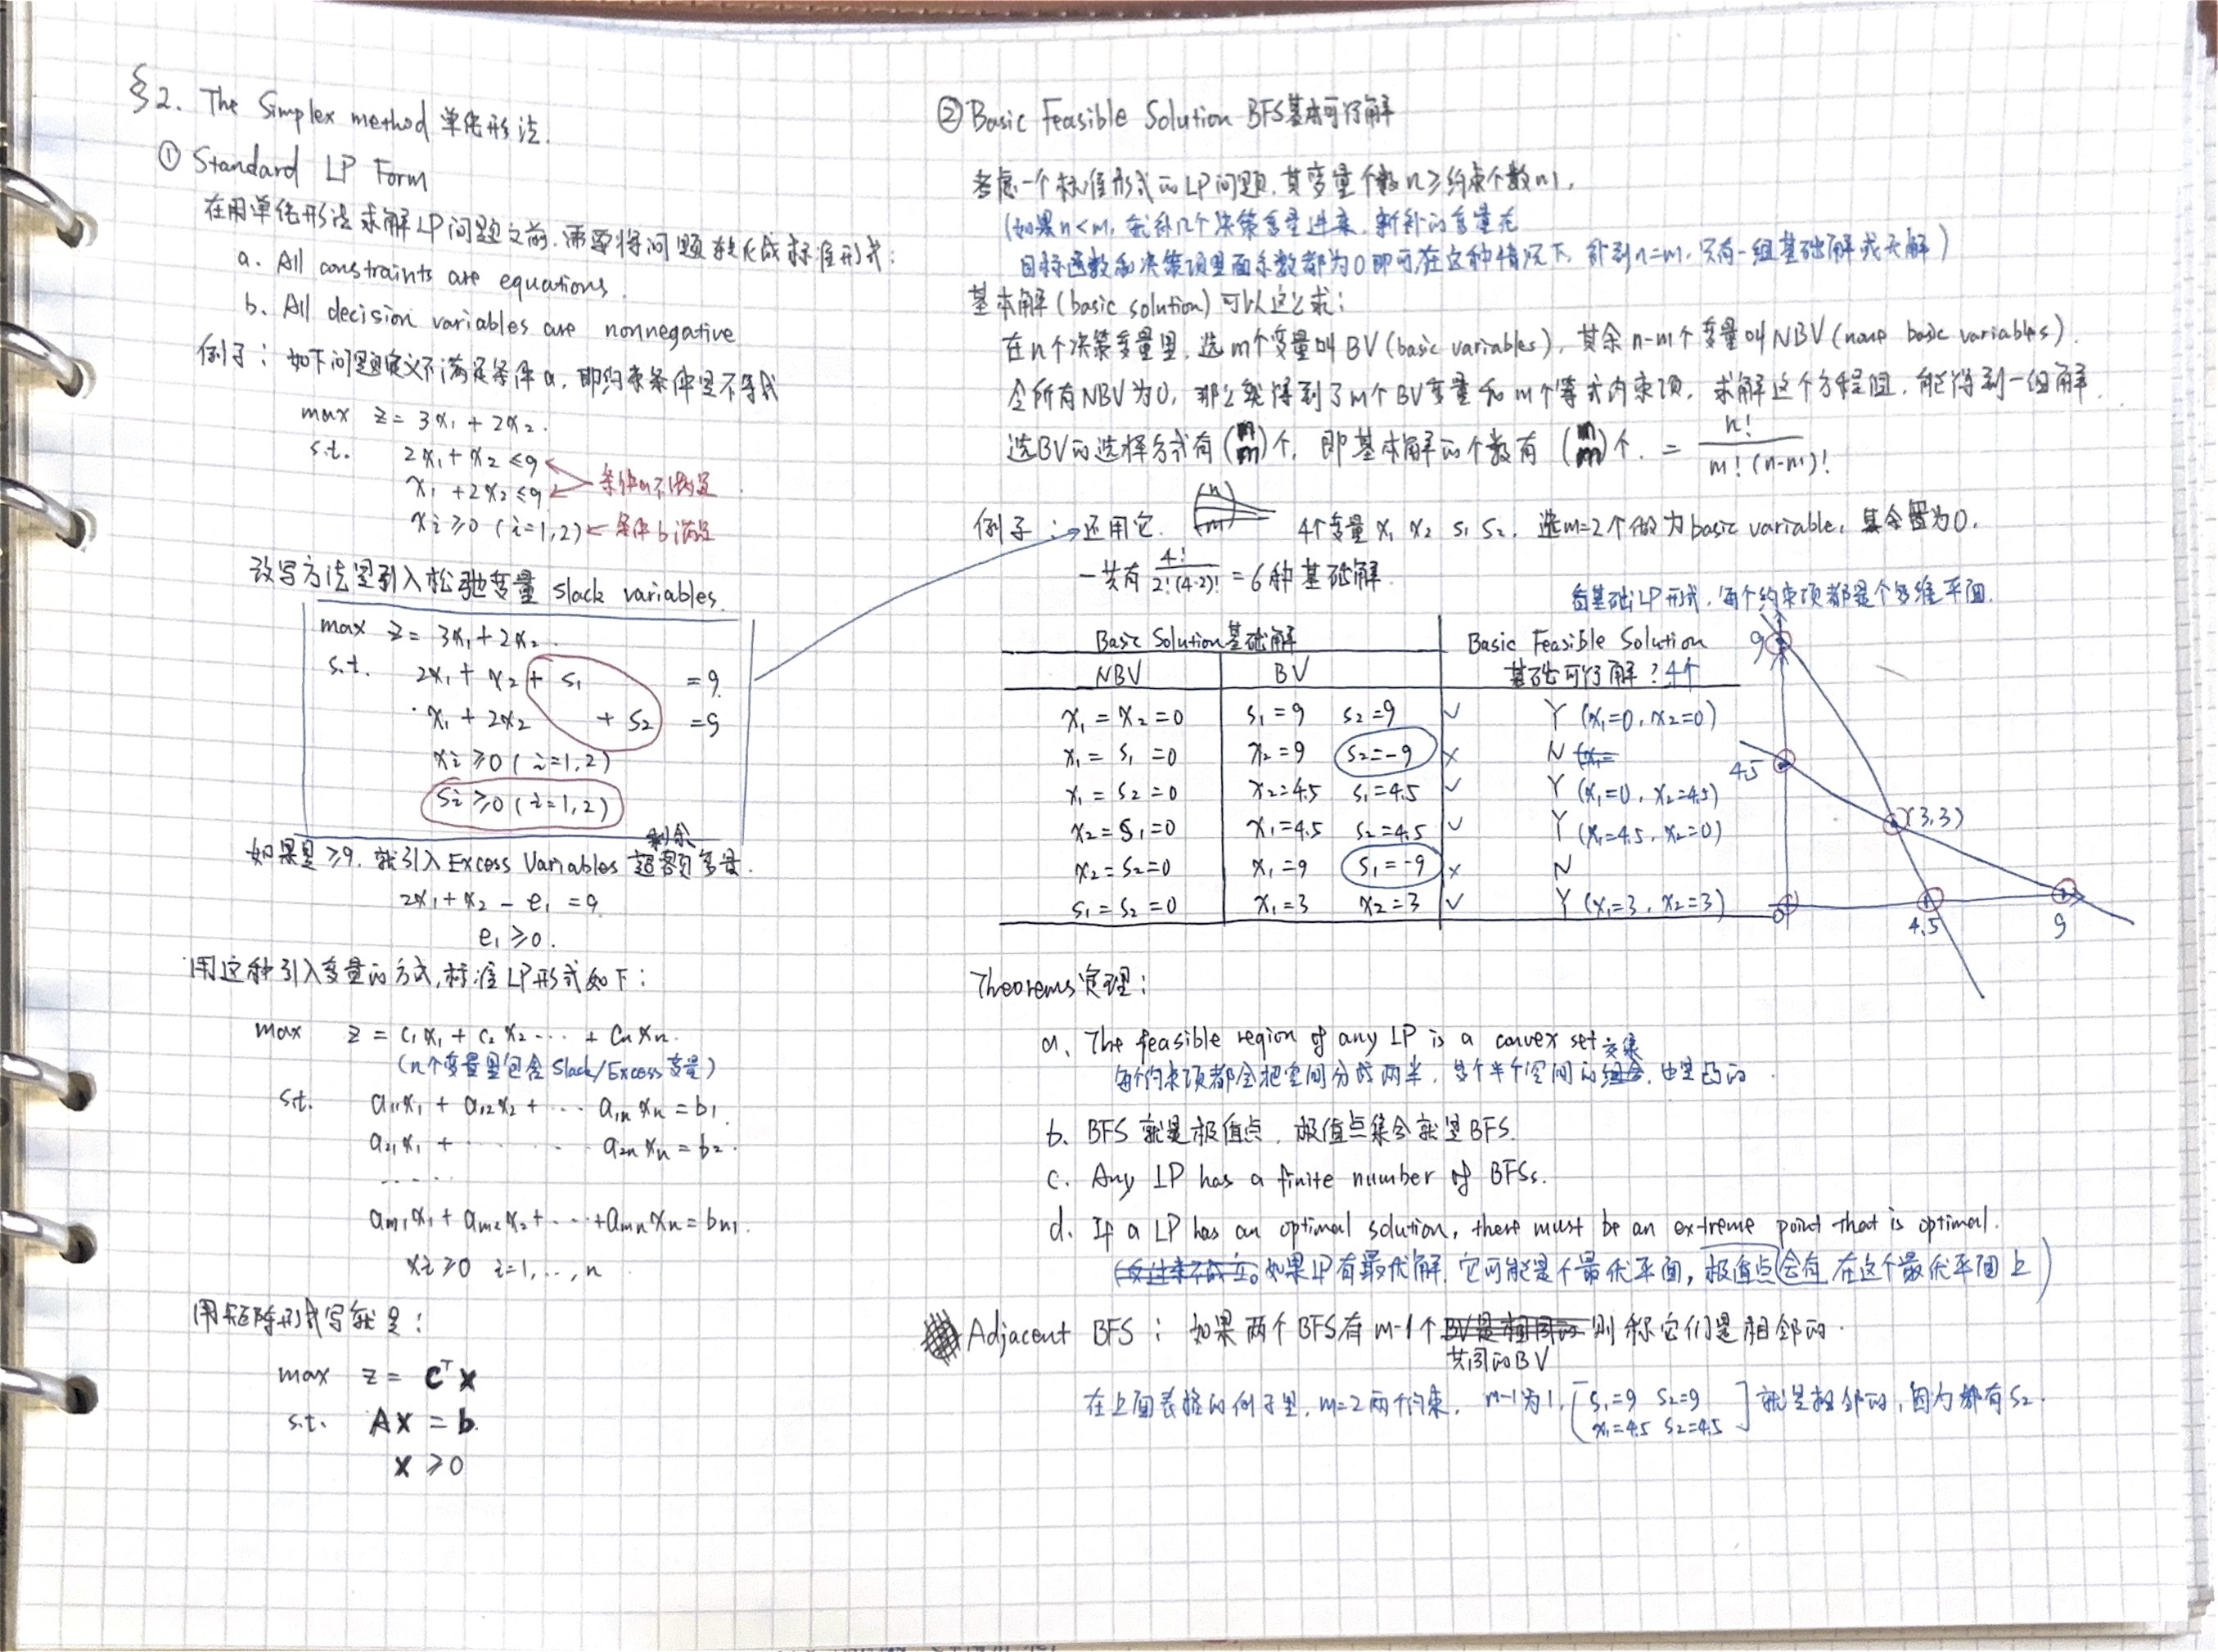 §2. The Simplex method 单纯形法.
① Standard LP Form
在用单纯形法求解LP问题之前,需要将问题转化成标准形式:
a. All constraints are equations.
b. All decision variables are nonnegative
例子: 如下问题定义不满足条件a, 即约束条件是不等式
max z = 3x₁ + 2x₂.
s.t. 2x₁ + x₂ ≤ 9
x₁ + 2x₂ ≤ 9 条件a不满足
xᵢ ≥ 0 (i=1,2) ← 条件b满足
改写方法是引入松弛变量 slack variables.
max z = 3x₁ + 2x₂.
s.t. 2x₁ + x₂ + s₁ = 9
x₁ + 2x₂ + s₂ = 9
xᵢ ≥ 0 (i=1,2)
sᵢ ≥ 0 (i=1,2)
剩余
如果是 ≥9. 就引入 Excess Variables 超额变量.
2x₁ + x₂ - e₁ = 9
e₁ ≥ 0.
用这种引入变量的方式,标准LP形式如下:
max z = c₁x₁ + c₂x₂ ... + cₙxₙ.
(n个变量里包含 Slack/Excess变量)
s.t. a₁₁x₁ + a₁₂x₂ + ... a₁ₙxₙ = b₁
a₂₁x₁ + ...... a₂ₙxₙ = b₂.
.....
aₘ₁x₁ + aₘ₂x₂ + ... + aₘₙxₙ = bₘ.
xᵢ ≥ 0 i=1,...,n
用矩阵形式写就是:
max z = cᵀx
s.t. Ax = b.
x ≥ 0
② Basic Feasible Solution BFS基本可行解
考虑一个标准形式的LP问题,其变量个数n≥约束个数m.
(如果n<m, 就补几个决策变量进来. 新补的变量在
目标函数和决策项里面系数都为0即可,在这种情况下, 补到n=m, 只有一组基础解或无解)
基本解(basic solution)可以这么求:
在n个决策变量里, 选m个变量叫BV(basic variables), 其余n-m个变量叫NBV(none basic variables).
令所有NBV为0, 那么就得到了m个BV变量和m个等式约束项. 求解这个方程组, 能得到一组解.
选BV的选择方式有(n m)个, 即基本解的个数有 (n m)个. = n! / m!(n-m)!
例子: 还用它. 4个变量 x₁ x₂ s₁ s₂. 选m=2个做为basic variable, 其余置为0.
一共有 4! / 2!(4-2)! = 6种基础解.
看基础LP形式, 每个约束项都是个多维平面.
Basic Solution基础解 Basic Feasible Solution
NBV BV 基础可行解? 4个
x₁ = x₂ = 0 s₁ = 9 s₂ = 9 ✓ Y (x₁=0, x₂=0)
x₁ = s₁ = 0 x₂ = 9 s₂ = -9 × N (x₁=
x₁ = s₂ = 0 x₂ = 4.5 s₁ = 4.5 ✓ Y (x₁=0, x₂=4.5)
x₂ = s₁ = 0 x₁ = 4.5 s₂ = 4.5 ✓ Y (x₁=4.5, x₂=0)
x₂ = s₂ = 0 x₁ = 9 s₁ = -9 × N
s₁ = s₂ = 0 x₁ = 3 x₂ = 3 ✓ Y (x₁=3, x₂=3)
9
4.5
(3,3)
0
4.5
9
Theorems定理:
a. The feasible region of any LP is a convex set
交集
每个约束项都会把空间分成两半, 每个半个空间的组合, 也是凸的.
b. BFS就是极值点, 极值点集合就是BFS.
c. Any LP has a finite number of BFSs.
d. If a LP has an optimal solution, there must be an extreme point that is optimal.
(反过来不成立。如果LP有最优解, 它可能是个最优平面, 极值点会有在这个最优平面上)
Adjacent BFS: 如果两个BFS有m-1个BV是相同的则称它们是相邻的.
共同的BV
在上面表格的例子里, m=2两个约束, m-1为1, [s₁=9 s₂=9 ] 就是相邻的, 因为都有s₂.
x₁=4.5 s₂=4.5